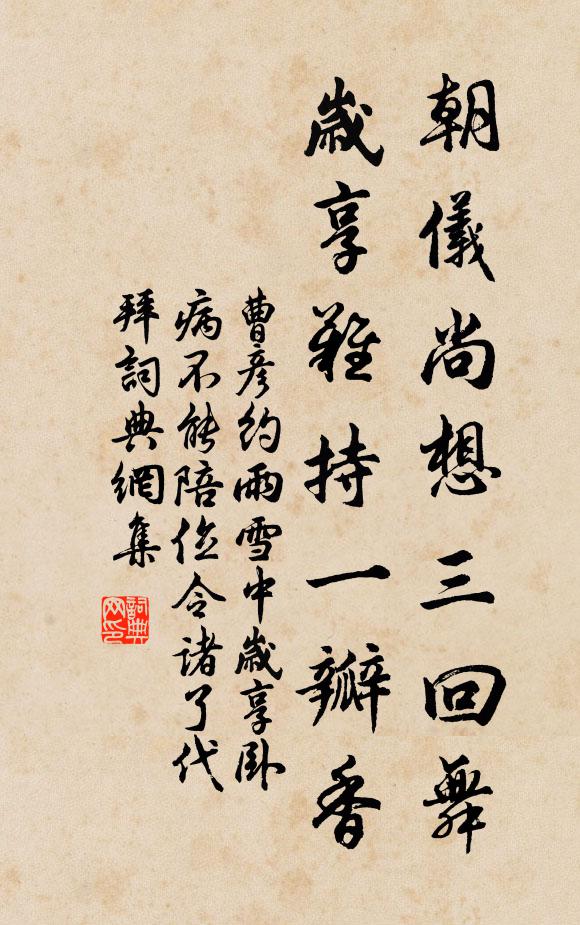 朝儀尚想三回舞
歲享難持一瓣香
曹彥約雨雪中歲享臥
病不能陪位令諸了代
拜詞典網集
詞典
网印